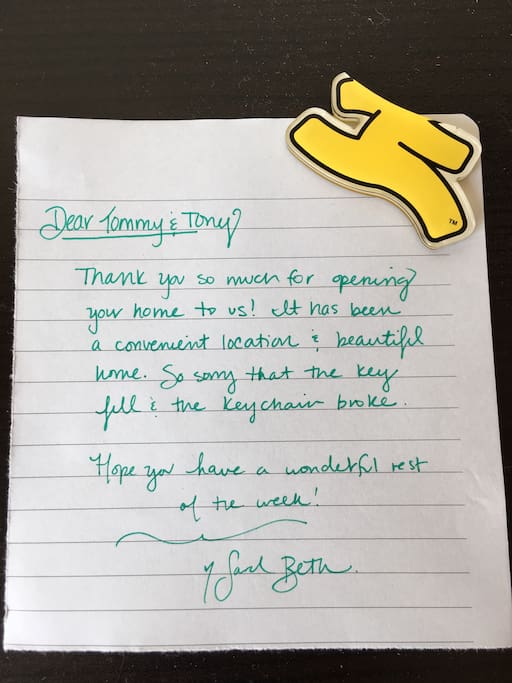 Dear Tommy & Tony,
Thank you so much for opening
your home to us! It has been
a convenient location & beautiful
home. So sorry that the key
fell & the keychain broke.
Hope you have a wonderful rest
of the week!
Beth
TM